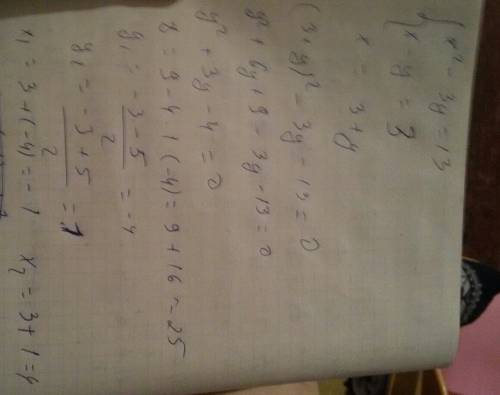 { x² - 3y = 13
x - y = 3
x = 3 + y
(3 + y)² - 3y - 13 = 0
y² + 6y + 9 - 3y - 13 = 0
y² + 3y - 4 = 0
D = 9 - 4 · 1 · (-4) = 9 + 16 = 25
y₁ = (-3 - 5)/2 = -4
y₂ = (-3 + 5)/2 = 1
x₁ = 3 + (-4) = -1   x₂ = 3 + 1 = 4